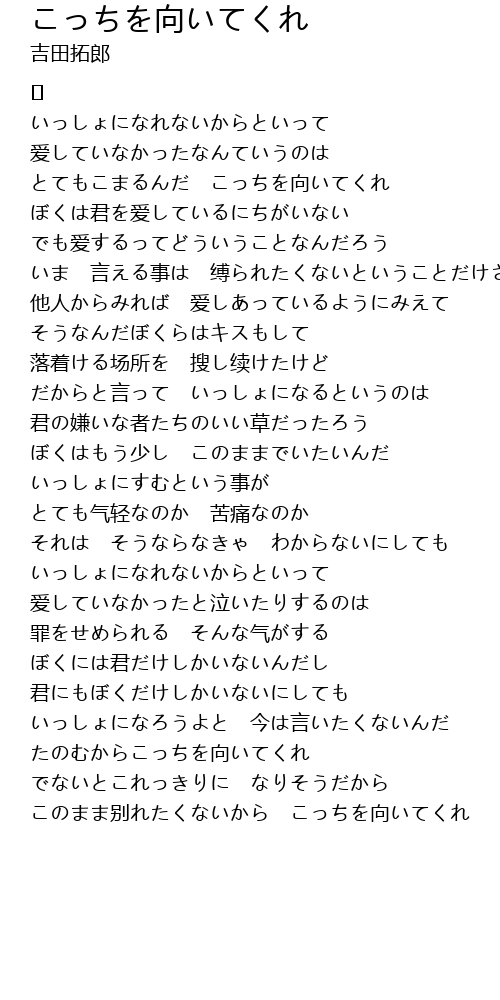 こっちを向いてくれ
吉田拓郎
いっしょになれないからといって
爱していなかったなんていうのは
とてもこまるんだ　こっちを向いてくれ
ぼくは君を爱しているにちがいない
でも爱するってどういうことなんだろう
いま　言える事は　缚られたくないということだけさ
他人からみれば　爱しあっているようにみえて
そうなんだぼくらはキスもして
落着ける场所を　搜し续けたけど
だからと言って　いっしょになるというのは
君の嫌いな者たちのいい草だったろう
ぼくはもう少し　このままでいたいんだ
いっしょにすむという事が
とても气轻なのか　苦痛なのか
それは　そうならなきゃ　わからないにしても
いっしょになれないからといって
爱していなかったと泣いたりするのは
罪をせめられる　そんな气がする
ぼくには君だけしかいないんだし
君にもぼくだけしかいないにしても
いっしょになろうよと　今は言いたくないんだ
たのむからこっちを向いてくれ
でないとこれっきりに　なりそうだから
このまま别れたくないから　こっちを向いてくれ